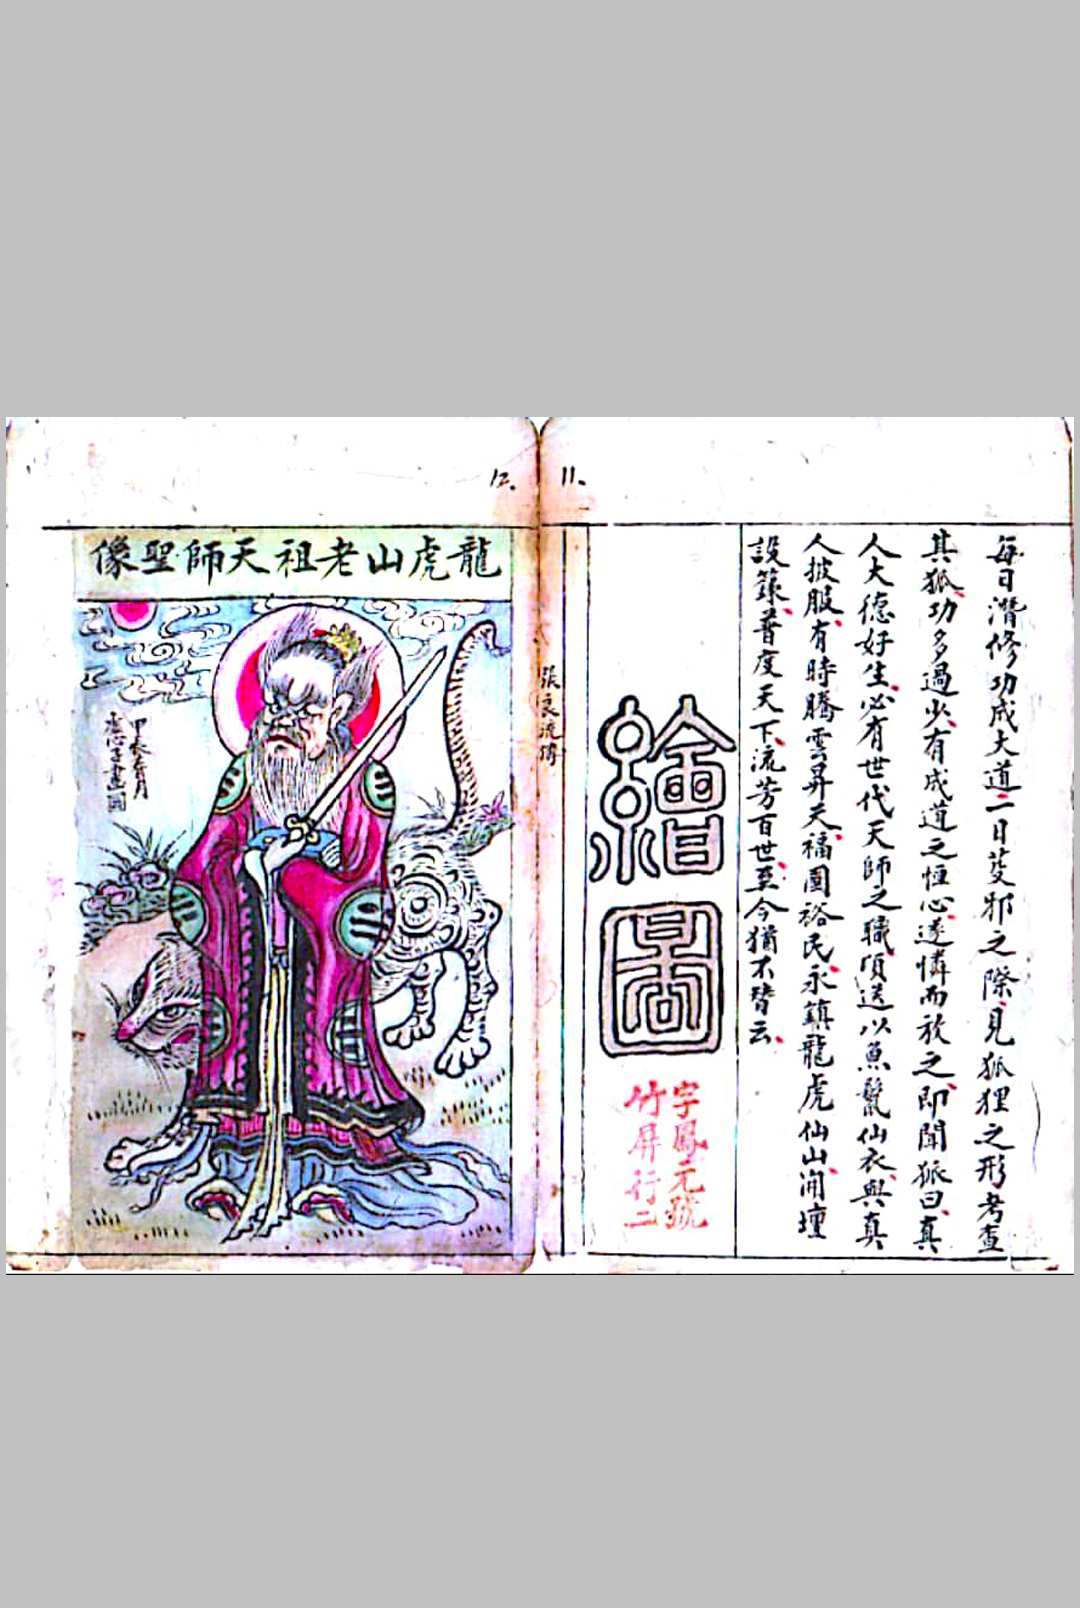 11.
每日潛修功成大道一日芟邪之際見狐狸之形考查
其狐功多過少有成道之恒心遂憐而放之即聞狐曰真
人大德好生必有世代天師之職須送以魚鬣仙衣與真
人披服有時騰雲昇天福國裕民永鎮龍虎仙山開壇
設籙普度天下流芳百世至今猶不替云
繪圖
字鳳元號
竹屏行二
流傳
12.
龍虎山老祖天師聖像
甲
月
畫圖